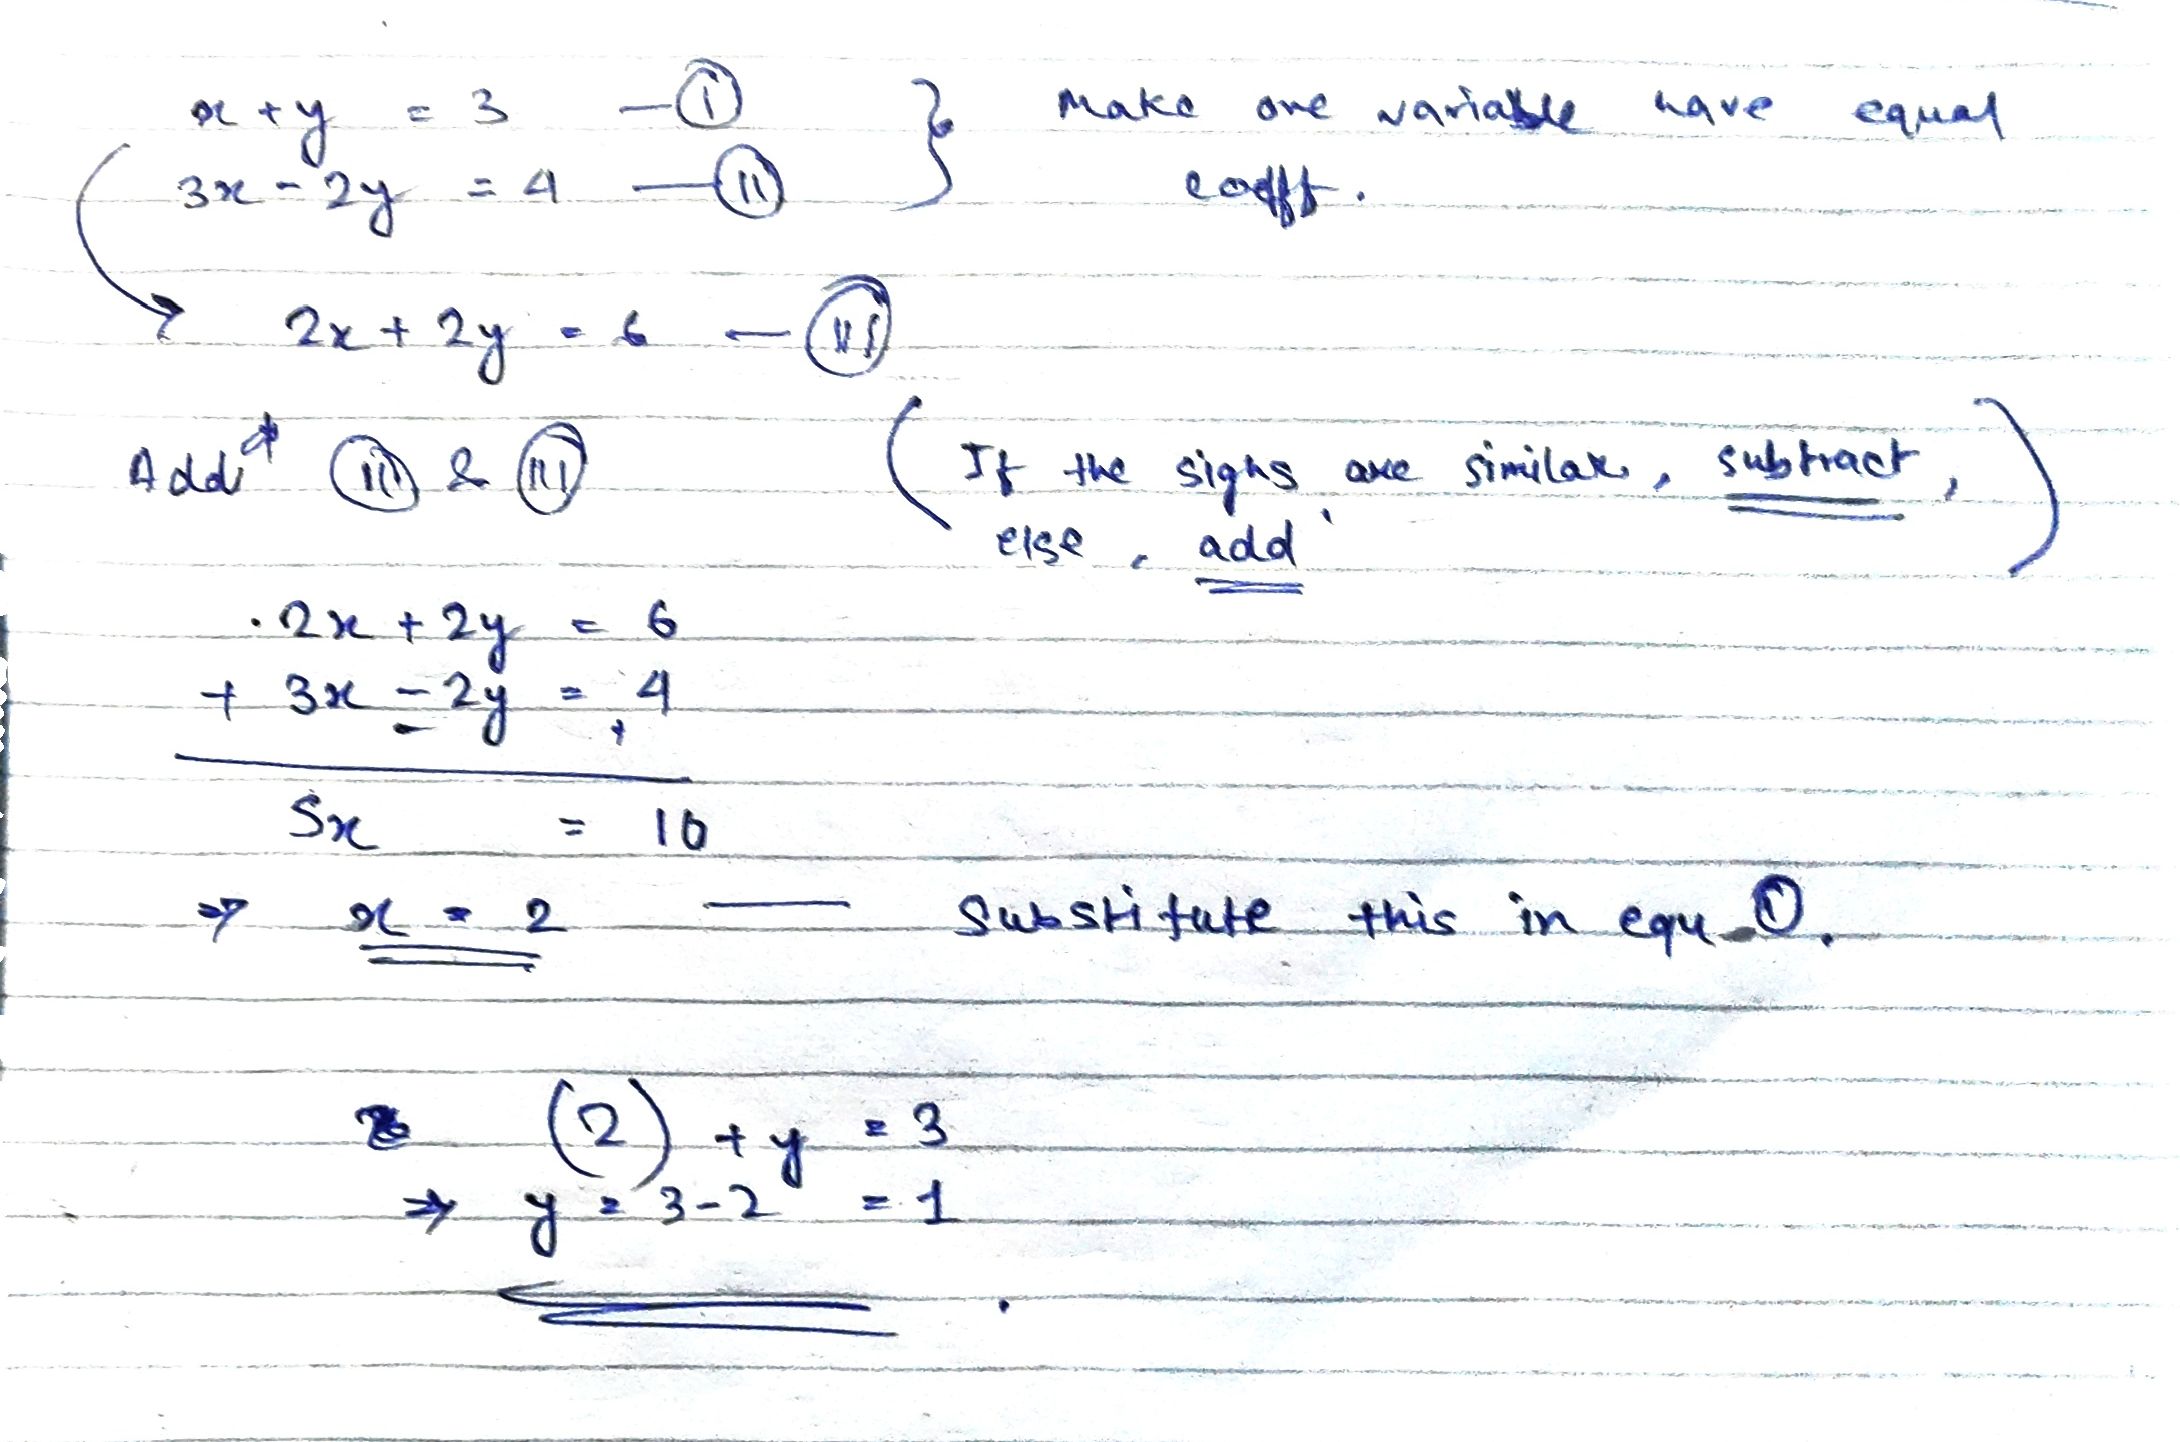 x + y = 3 — (I) } Make one variable have equal
3x - 2y = 4 — (II) coeff.
2x + 2y = 6 — (III)
Add (III) & (III) (If the signs are similar, subtract,
else, add)
2x + 2y = 6
+ 3x - 2y = 4
- +
5x = 10
⇒ x = 2 — Substitute this in equ (I).
(2) + y = 3
⇒ y = 3-2 = 1